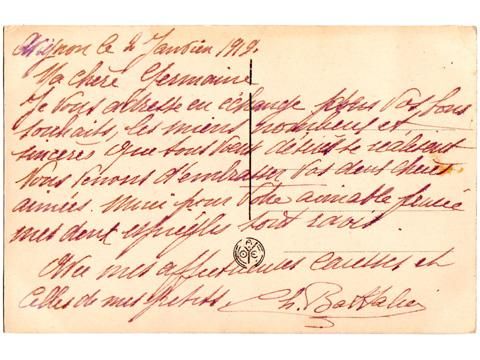 Avignon le 2 Janvier 1919.
Ma chère Germaine
Je vous adresse en échange pour vos bons
souhaits, les miens nombreux et
sincères que tous vos désirs se réalisent
Vous venons d'embrasser vos deux chères
aimées. Merci pour votre aimable pensée
mes deux espiègles sont ravis
Avec mes affectueuses caresses et
celles de mes petits